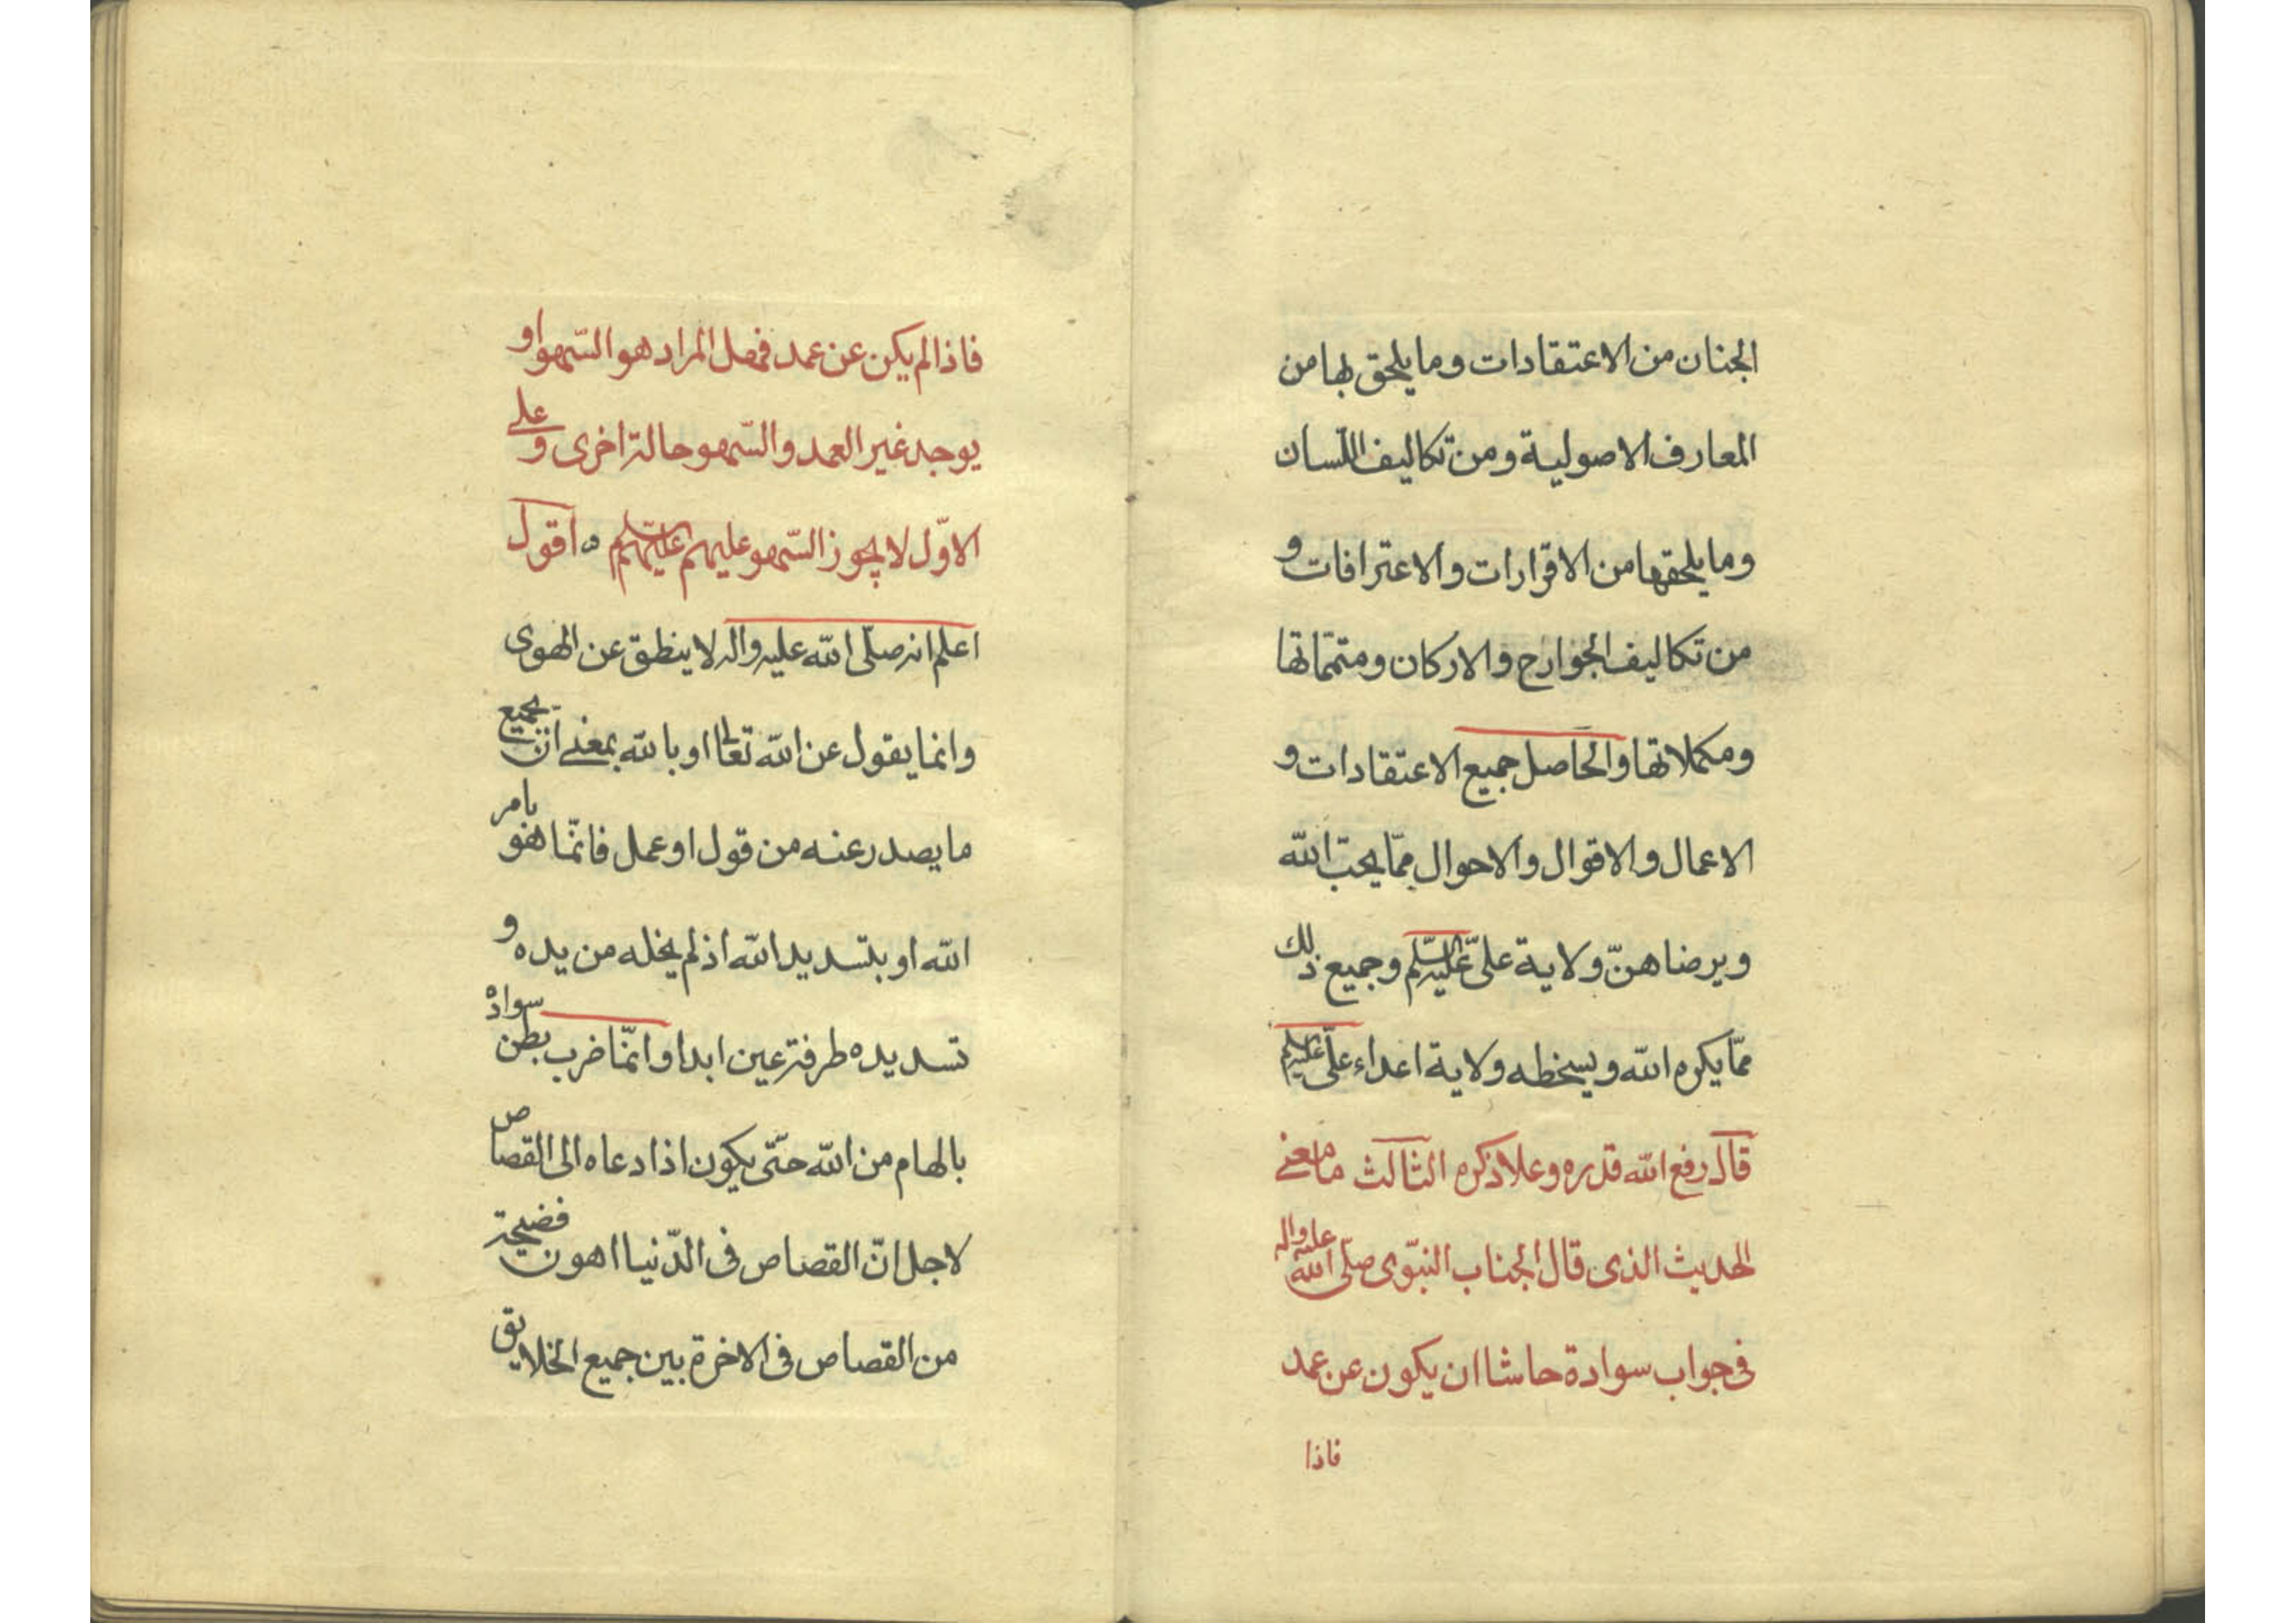 الجنان من الاعتقادات وما يلحق بها من
المعارف الاصولية ومن تكاليف اللّسان
وما يلحقها من الاقرارات والاعترافات و
من تكاليف الجوارح والاركان ومتمّماتها
ومكملاتها والحاصل جميع الاعتقادات و
الاعمال والاقوال والاحوال ممّا يحبّ اللّه
ويرضاه من ولاية علىّ عليه السّلم وجميع ذلك
ممّا يكره اللّه ويسخطه ولاية اعداء علىّ عليه السلم
قال رفع اللّه قدره وعلا ذكره الثالث ما معنى
الحديث الذى قال الجناب النبّوى صلّى اللّه عليه واله
فى جواب سوادة حاشا ان يكون عن عمد
فاذا
فاذا لم يكن عن عمد فهل المراد هو السّهو او
يوجد غير العمد والسّهو حالة اخرى وعلى
الاوّل لا يجوز السّهو عليهم عليهم السّلم ٥ اقول
اعلم انه صلّى اللّه عليه واله لا ينطق عن الهوى
وانما يقول عن اللّه تعالى او باللّه بمعنى انّ جميع
ما يصدر عنه من قول او عمل فانّما هو بامر
اللّه او بتسديد اللّه اذ لم يخله من يده و
تسديده طرفة عين ابدا وانّما ضرب بطن سواده
بالهام من اللّه حتّى يكون اذا دعاه الى القصاص
لاجل انّ القصاص فى الدّنيا اهون فضيحة
من القصاص فى الاخرة بين جميع الخلايق